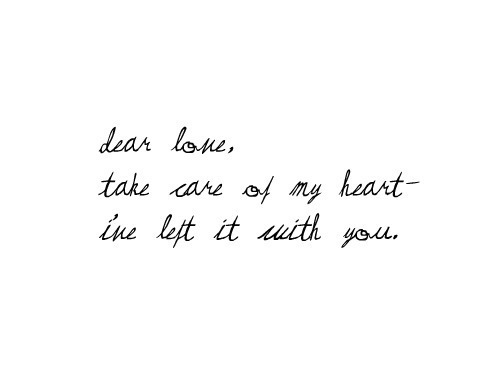 dear love,
take care of my heart-
i've left it with you.